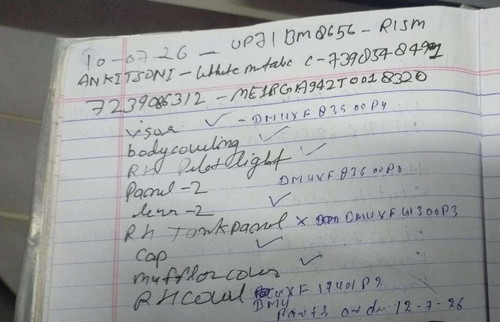 10-07-26 - UP71BM8656 - R15M
ANKITSONI - White metalic C-7398548491
7239086312 - ME1RG1A942T0018320
visor ✓ - DMUXF83500P4
bodycowling ✓
RH Pilot light ✓
Panel-2 DMUXF83600P3
lens-2 ✓
RH Tank panel × DMUXF41300P3
cap ✓
mufflor cover ✓
RH cowl UXF17401P2
DMY Parts order 12-7-26